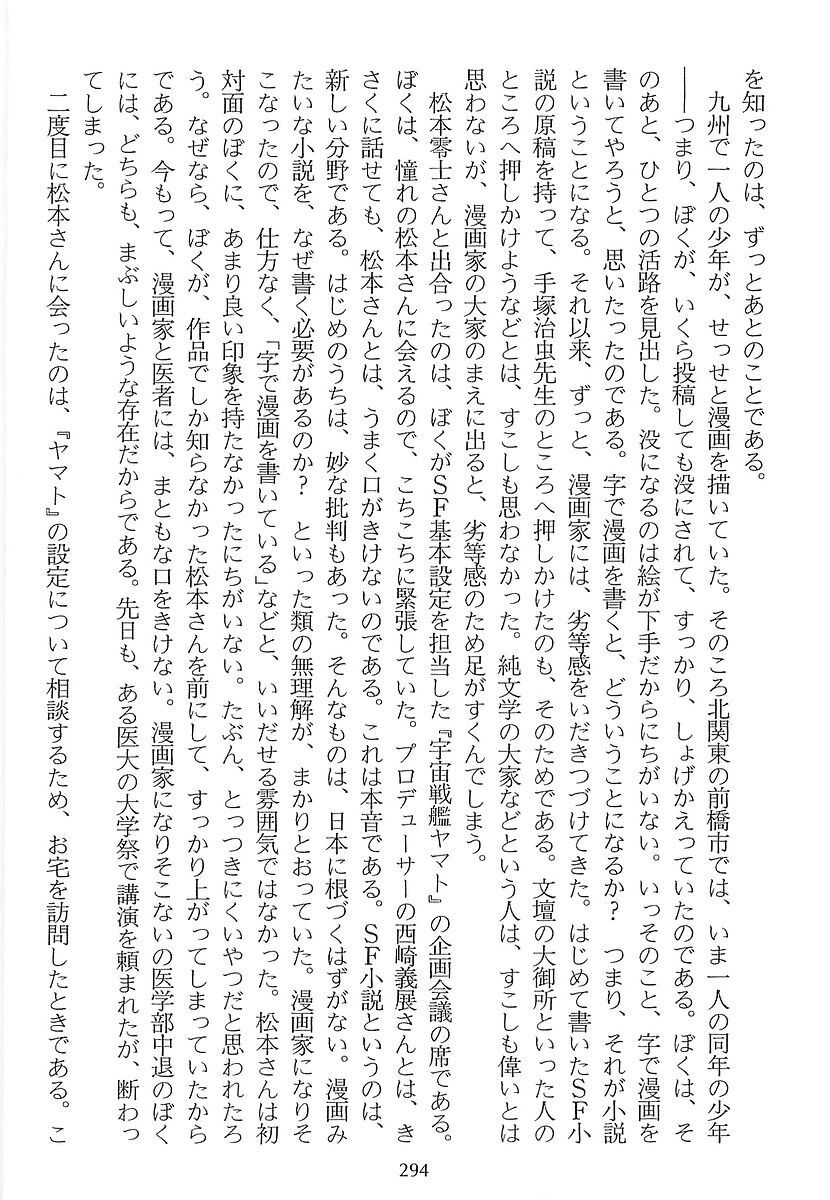 を知ったのは、ずっとあとのことである。
　九州で一人の少年が、せっせと漫画を描いていた。そのころ北関東の前橋市では、いま一人の同年の少年
――つまり、ぼくが、いくら投稿しても没にされて、すっかり、しょげかえっていたのである。ぼくは、そ
のあと、ひとつの活路を見出した。没になるのは絵が下手だからにちがいない。いっそのこと、字で漫画を
書いてやろうと、思いたったのである。字で漫画を書くと、どういうことになるか？　つまり、それが小説
ということになる。それ以来、ずっと、漫画家には、劣等感をいだきつづけてきた。はじめて書いたＳＦ小
説の原稿を持って、手塚治虫先生のところへ押しかけたのも、そのためである。文壇の大御所といった人の
ところへ押しかけようなどとは、すこしも思わなかった。純文学の大家などという人は、すこしも偉いとは
思わないが、漫画家の大家のまえに出ると、劣等感のため足がすくんでしまう。
　松本零士さんと出合ったのは、ぼくがＳＦ基本設定を担当した『宇宙戦艦ヤマト』の企画会議の席である。
ぼくは、憧れの松本さんに会えるので、こちこちに緊張していた。プロデューサーの西崎義展さんとは、き
さくに話せても、松本さんとは、うまく口がきけないのである。これは本音である。ＳＦ小説というのは、
新しい分野である。はじめのうちは、妙な批判もあった。そんなものは、日本に根づくはずがない。漫画み
たいな小説を、なぜ書く必要があるのか？　といった類の無理解が、まかりとおっていた。漫画家になりそ
こなったので、仕方なく、「字で漫画を書いている」などと、いいだせる雰囲気ではなかった。松本さんは初
対面のぼくに、あまり良い印象を持たなかったにちがいない。たぶん、とっつきにくいやつだと思われたろ
う。なぜなら、ぼくが、作品でしか知らなかった松本さんを前にして、すっかり上がってしまっていたから
である。今もって、漫画家と医者には、まともな口をきけない。漫画家になりそこないの医学部中退のぼく
には、どちらも、まぶしいような存在だからである。先日も、ある医大の大学祭で講演を頼まれたが、断わっ
てしまった。
　二度目に松本さんに会ったのは、『ヤマト』の設定について相談するため、お宅を訪問したときである。こ
294